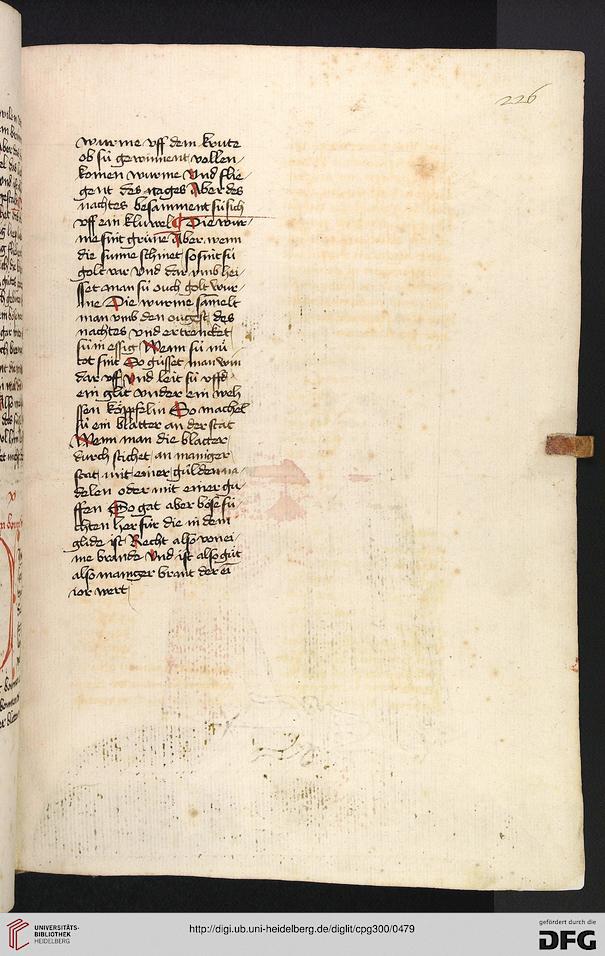 226
wurme vff dem krute
ob sú gewinnent vollen
komen wurme Vnd flie
gent des tages Aber des
nachtes besamment sú sich
vff ein kluwel Die wur
me sint grúne Aber wenn
die sunne schinet so sint sú
golt var vnd dar vmb hei
sset man sú ouch golt wur
me Die wurme samelt
man vmb den ougest des
nachtes vnd ertrencket
sú in essig Wenn sú nú
tot sint So gússet man win
dar vff Vnd leit sú vffe
ein glit vnder ein
ssen So machet
sú ein blatter an der stat
Wenn man die blatter
durch stichet an maniger
stat mit einer gúlden na
delen oder mit einer gu
ffen So gat aber bose fú
chten her fúr die in dem
glide ist Recht also von ei
me brande Vnd ist also gút
also maniger brant der ei
ior wert
UNIVERSITÄTS-
BIBLIOTHEK
HEIDELBERG
http://digi.ub.uni-heidelberg.de/diglit/cpg300/0479
gefördert durch die
DFG